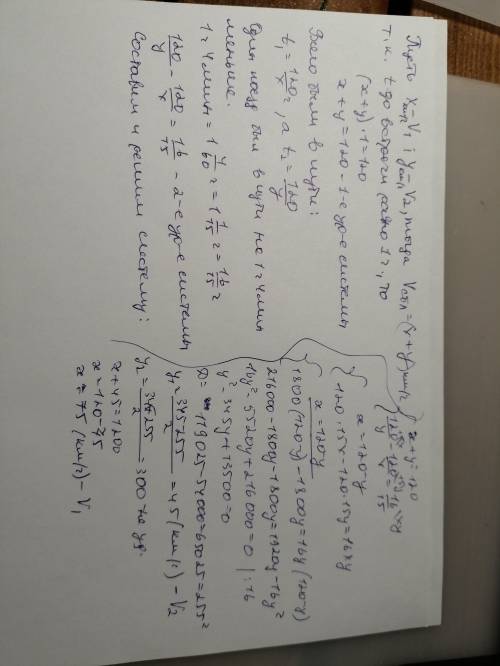 Пусть x км/ч – V1 и y км/ч V2, тогда Vсбл = (x+y) км/ч
т.к. t до встречи равно 1ч, то
(x+y)·1=120
x+y=120 – 1-е ур-е системы
Всего были в пути:
t₁ = 120/x ч, а t₂ = 120/y
Один поезд был в пути на 1ч 4 мин
меньше.
1ч 4мин = 1 4/60 ч = 1 1/15 ч = 16/15 ч
120/y - 120/x = 16/15 – 2-е ур-е системы
Составим и решим систему:
{ x+y=120
120/y - 120/x = 16/15
{ x=120-y
120·15x-120·15y=16xy
{ x=120-y
1800(120-y)-1800y=16y(120-y)
216000-1800y-1800y=1920y-16y²
16y²-5520y+216000=0 |:16
y²-345y+13500=0
D=119025-54000=65025=255²
y₁=(345-255)/2=45 (км/ч) – V2
y₂=(345+255)/2=300 не уд.
x+45=120
x=120-45
x=75 (км/ч) – V1